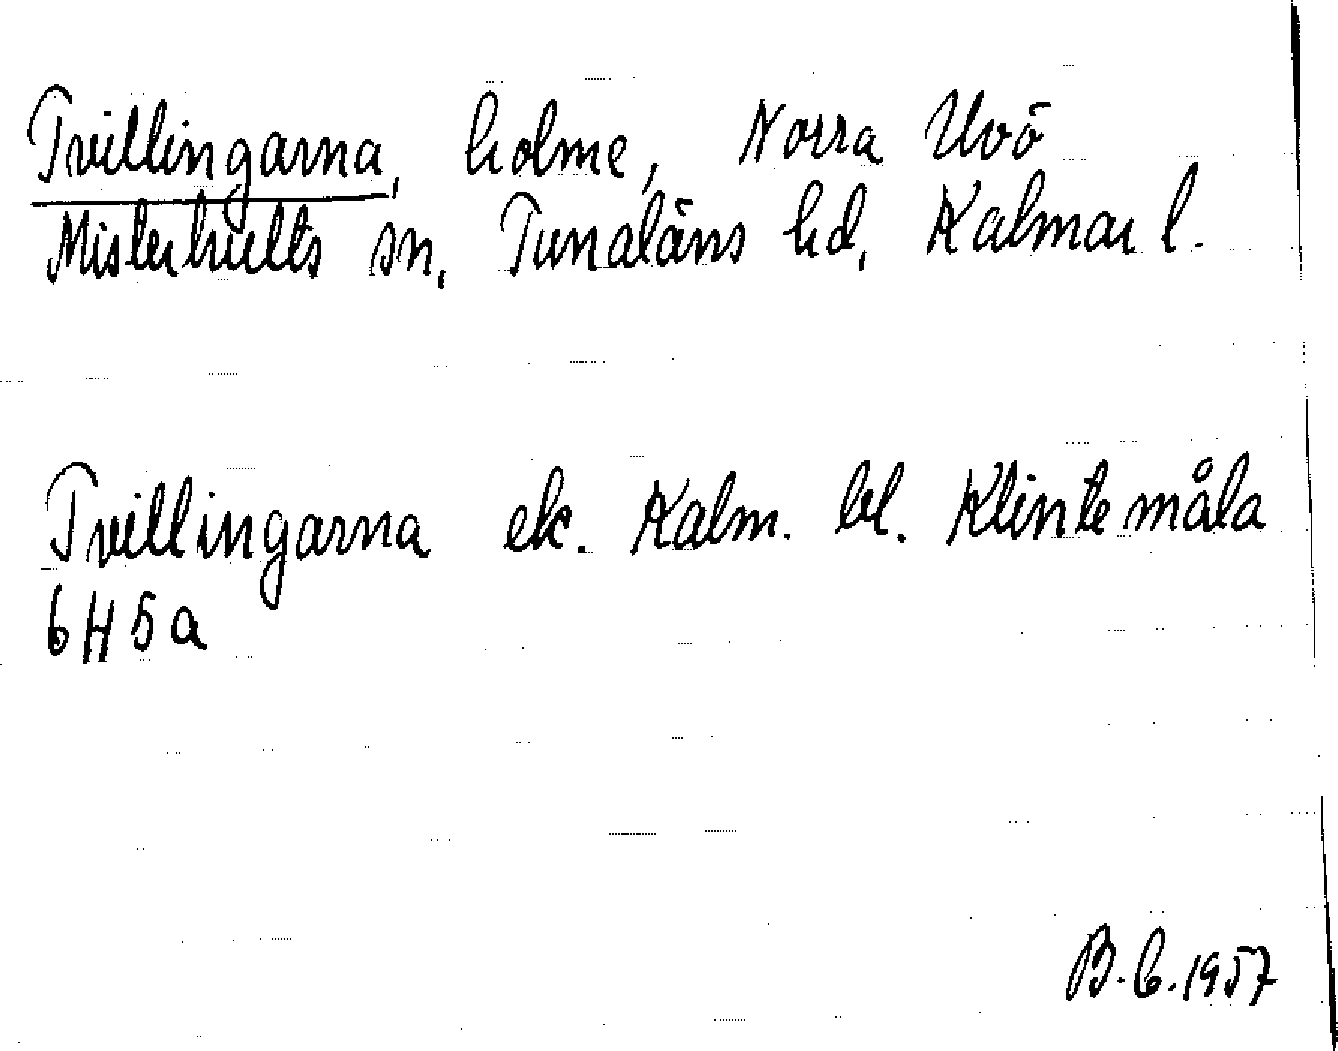 Tvillingarna, holme, Norra Uvö
Misterhults sn, Tunaläns hd, Kalmar l.
Tvillingarna ek. Kalm. bl. Klintemåla
6H5a
B.G.1957